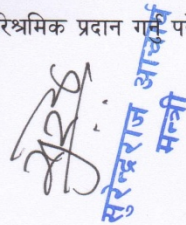 रिश्रमिक प्रदान गर्नु पर
सुरेन्द्रराज आचार्य
मन्त्री